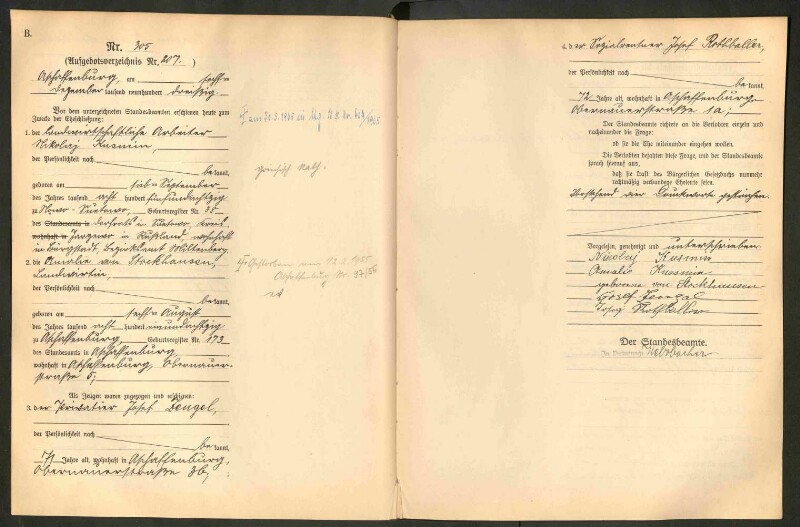 B.
Nr. 305
(Aufgebotsverzeichnis Nr. 207.)
Aschaffenburg, am sechsten
Dezember tausend neunhundert dreißig
Vor dem unterzeichneten Standesbeamten erschienen heute zum
Zwecke der Eheschließung:
1. der landwirtschaftliche Arbeiter
Nikolaj Kusmin,
der Persönlichkeit nach
be kannt,
geboren am September
des Jahres tausend acht hundert fünfundachtzig
zu Geburtsregister Nr. 35
des Standesamts in
wohnhaft in in Rußland, wohnhaft
in Bürgstadt, Bezirksamt Miltenberg.
2. die Amalie von Stockhausen,
Landwirtin,
der Persönlichkeit nach
be kannt,
geboren am sechsten August
des Jahres tausend acht hundert einundachtzig
zu Aschaffenburg, Geburtsregister Nr. 173
des Standesamts in Aschaffenburg
wohnhaft in Aschaffenburg, Obernauer-
straße 5;
Als Zeugen waren zugezogen und erschienen:
3. der Privatier Josef
der Persönlichkeit nach
be kannt,
71 Jahre alt, wohnhaft in Aschaffenburg,
Obernauerstraße 36;
griechisch kath.
Gestorben am
Aschaffenburg Nr.
4. der Sozialrentner Josef Rothballer,
der Persönlichkeit nach
be kannt,
72 Jahre alt, wohnhaft in Aschaffenburg
Obernauerstraße 1a;
Der Standesbeamte richtete an die Verlobten einzeln und
nacheinander die Frage:
ob sie die Ehe miteinander eingehen wollen.
Die Verlobten bejahten diese Frage, und der Standesbeamte
sprach hierauf aus,
daß sie kraft des Bürgerlichen Gesetzbuchs nunmehr
rechtmäßig verbundene Eheleute seien.
Vorstehend Druckwort gestrichen.
Vorgelesen, genehmigt und unterschrieben
Nikolaj Kusmin
Amalie Kusmin
geborene von Stockhausen
Josef
Josef Rothballer
Der Standesbeamte.
In Vertretung: